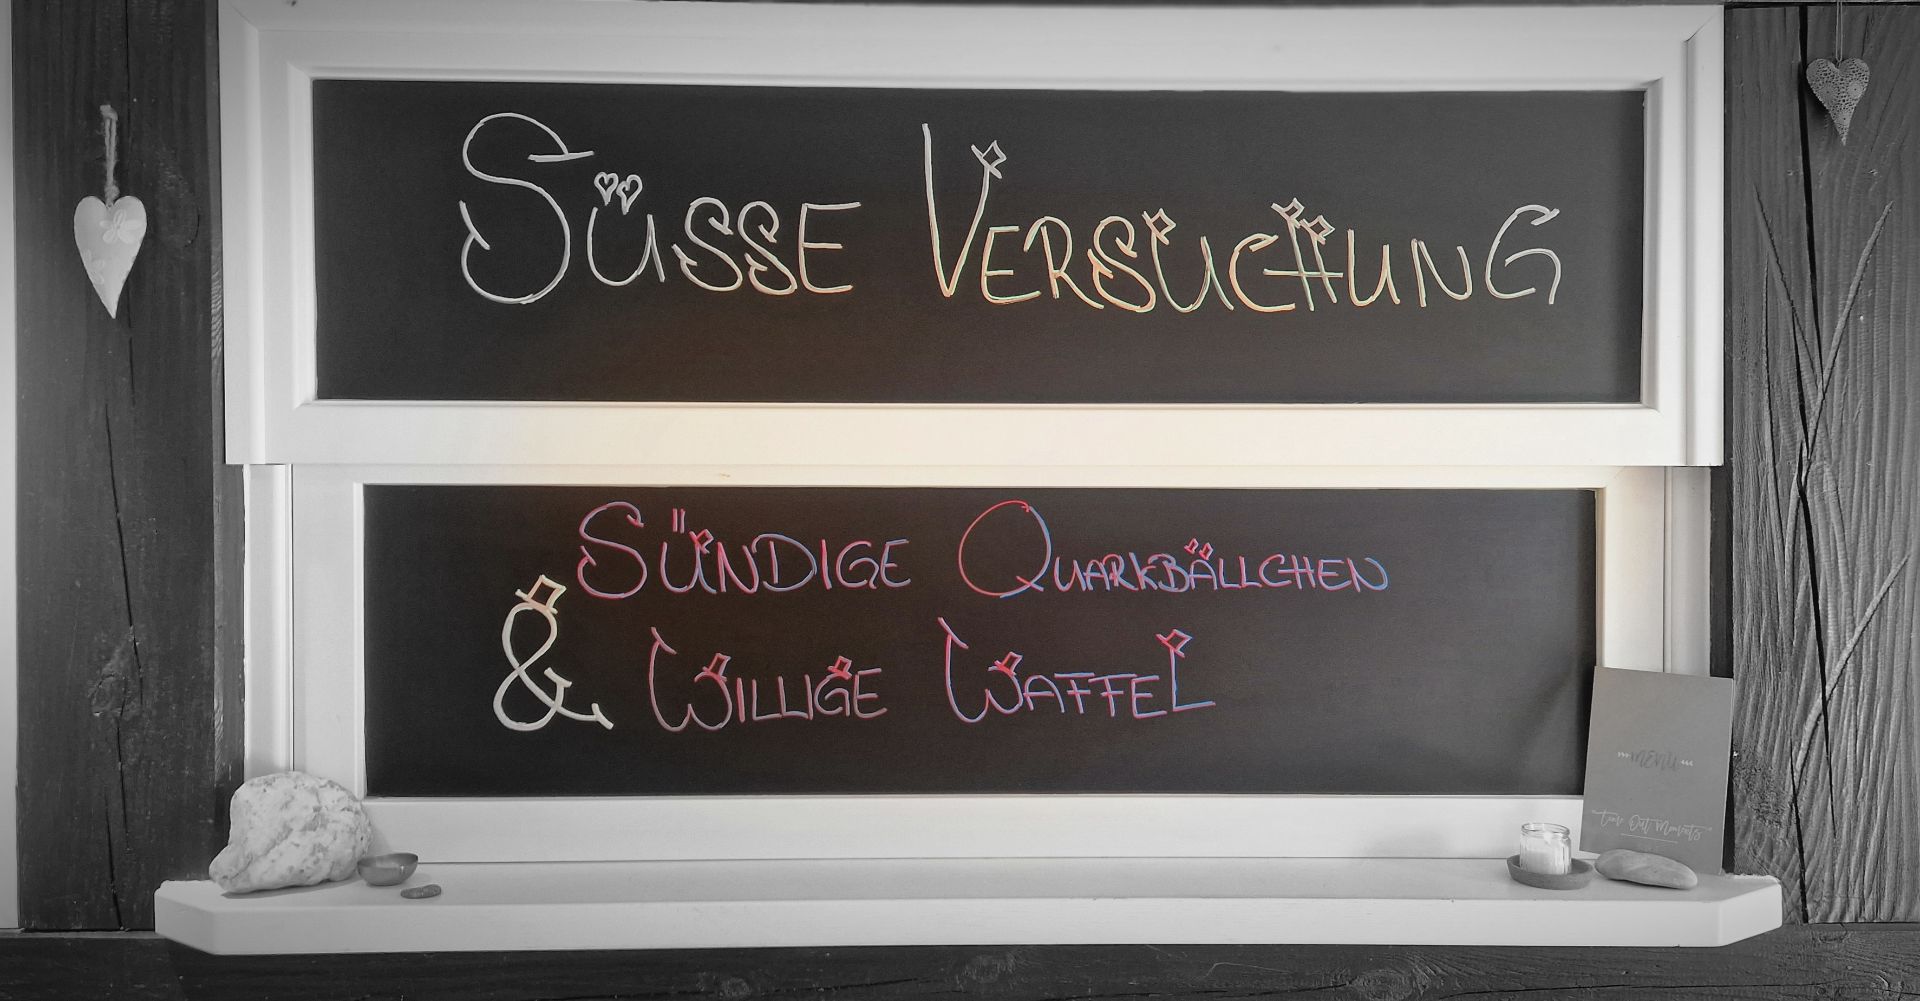 SÜSSE VERSUCHUNG
SÜNDIGE QUARKBÄLLCHEN
& WILLIGE WAFFEL
MENU
Time Out Moments